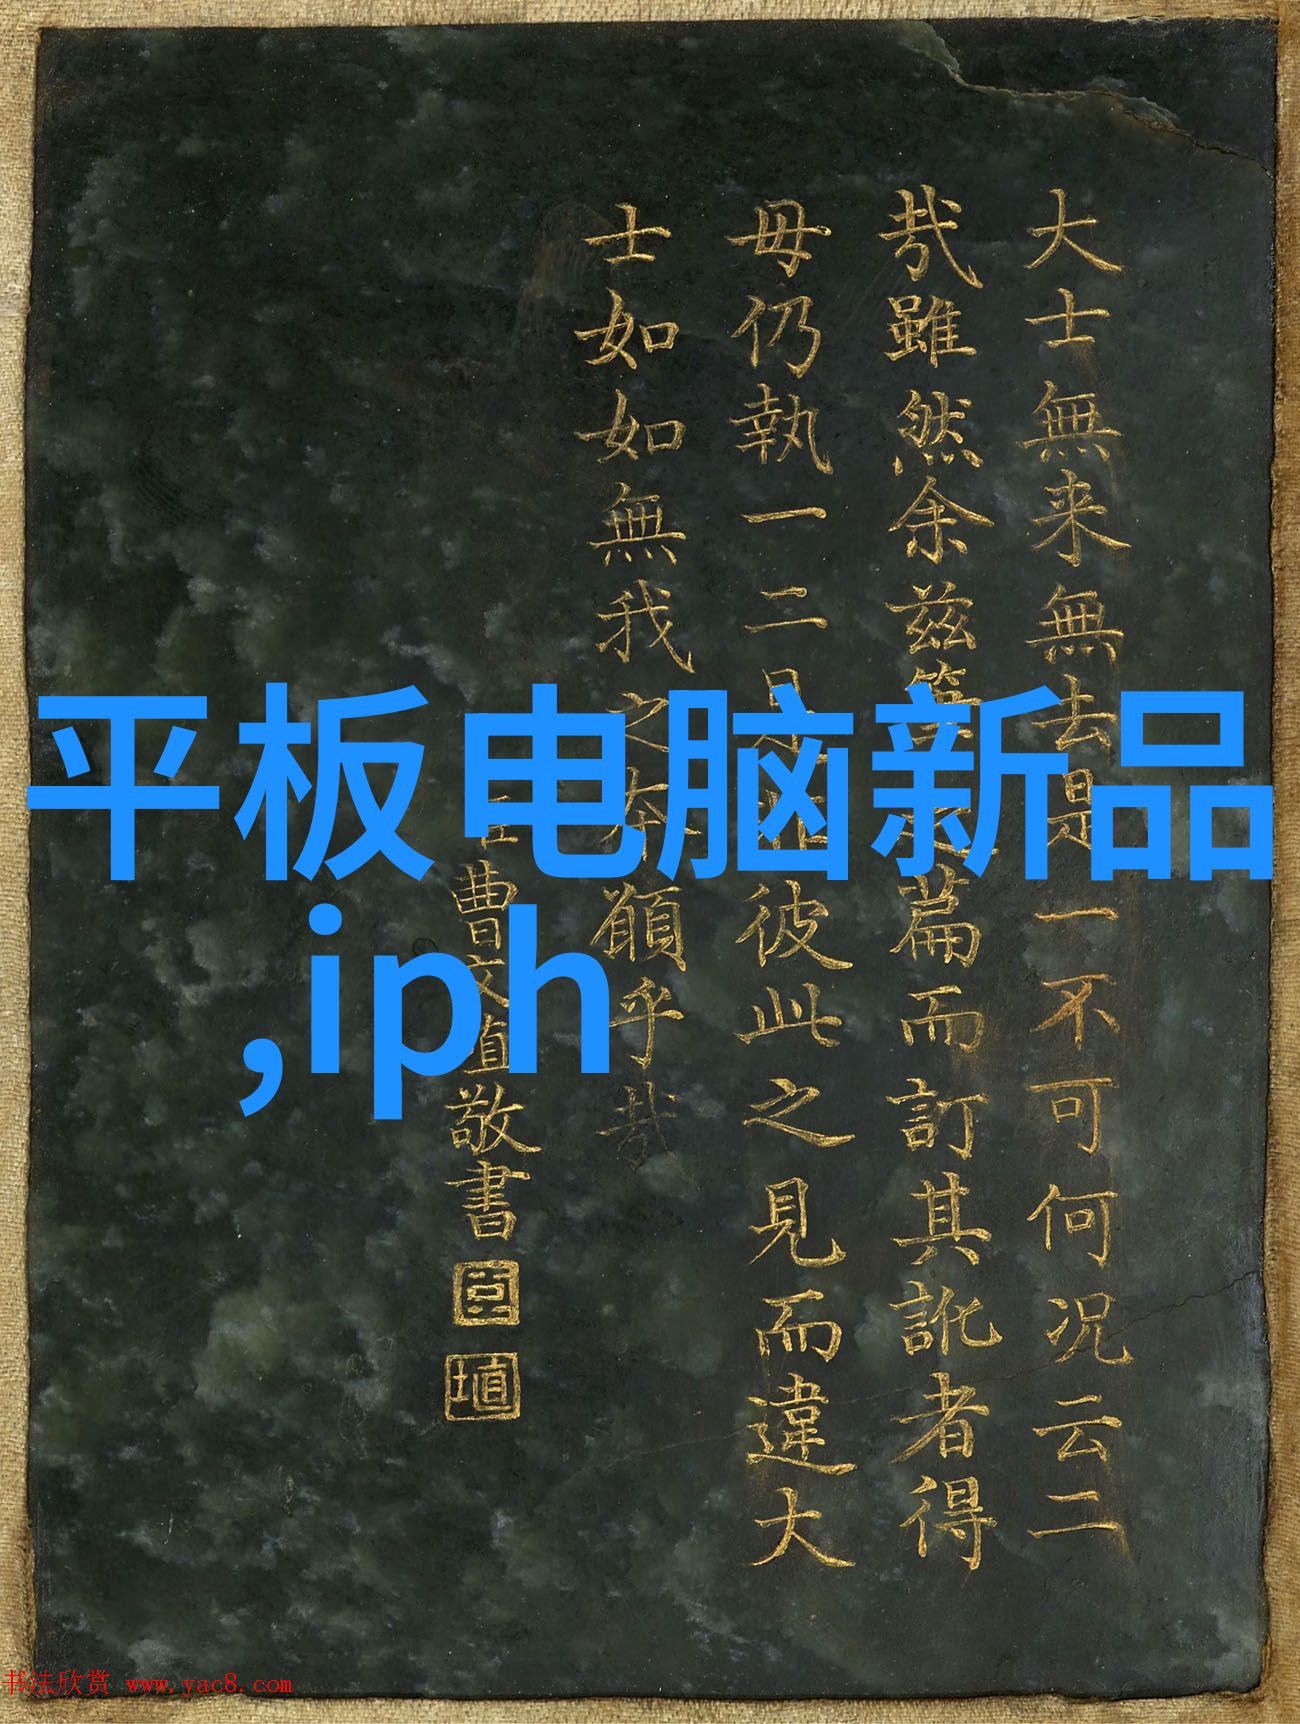 平板电脑新品
,iph
大士無来無去是一不可何况云二
哉雖然余兹篇而訂其訛者得
毋仍執一二是非彼此之見而違大
士如如無我之本願乎哉
曹文埴敬書
埴
书法欣赏 www.yac8.com